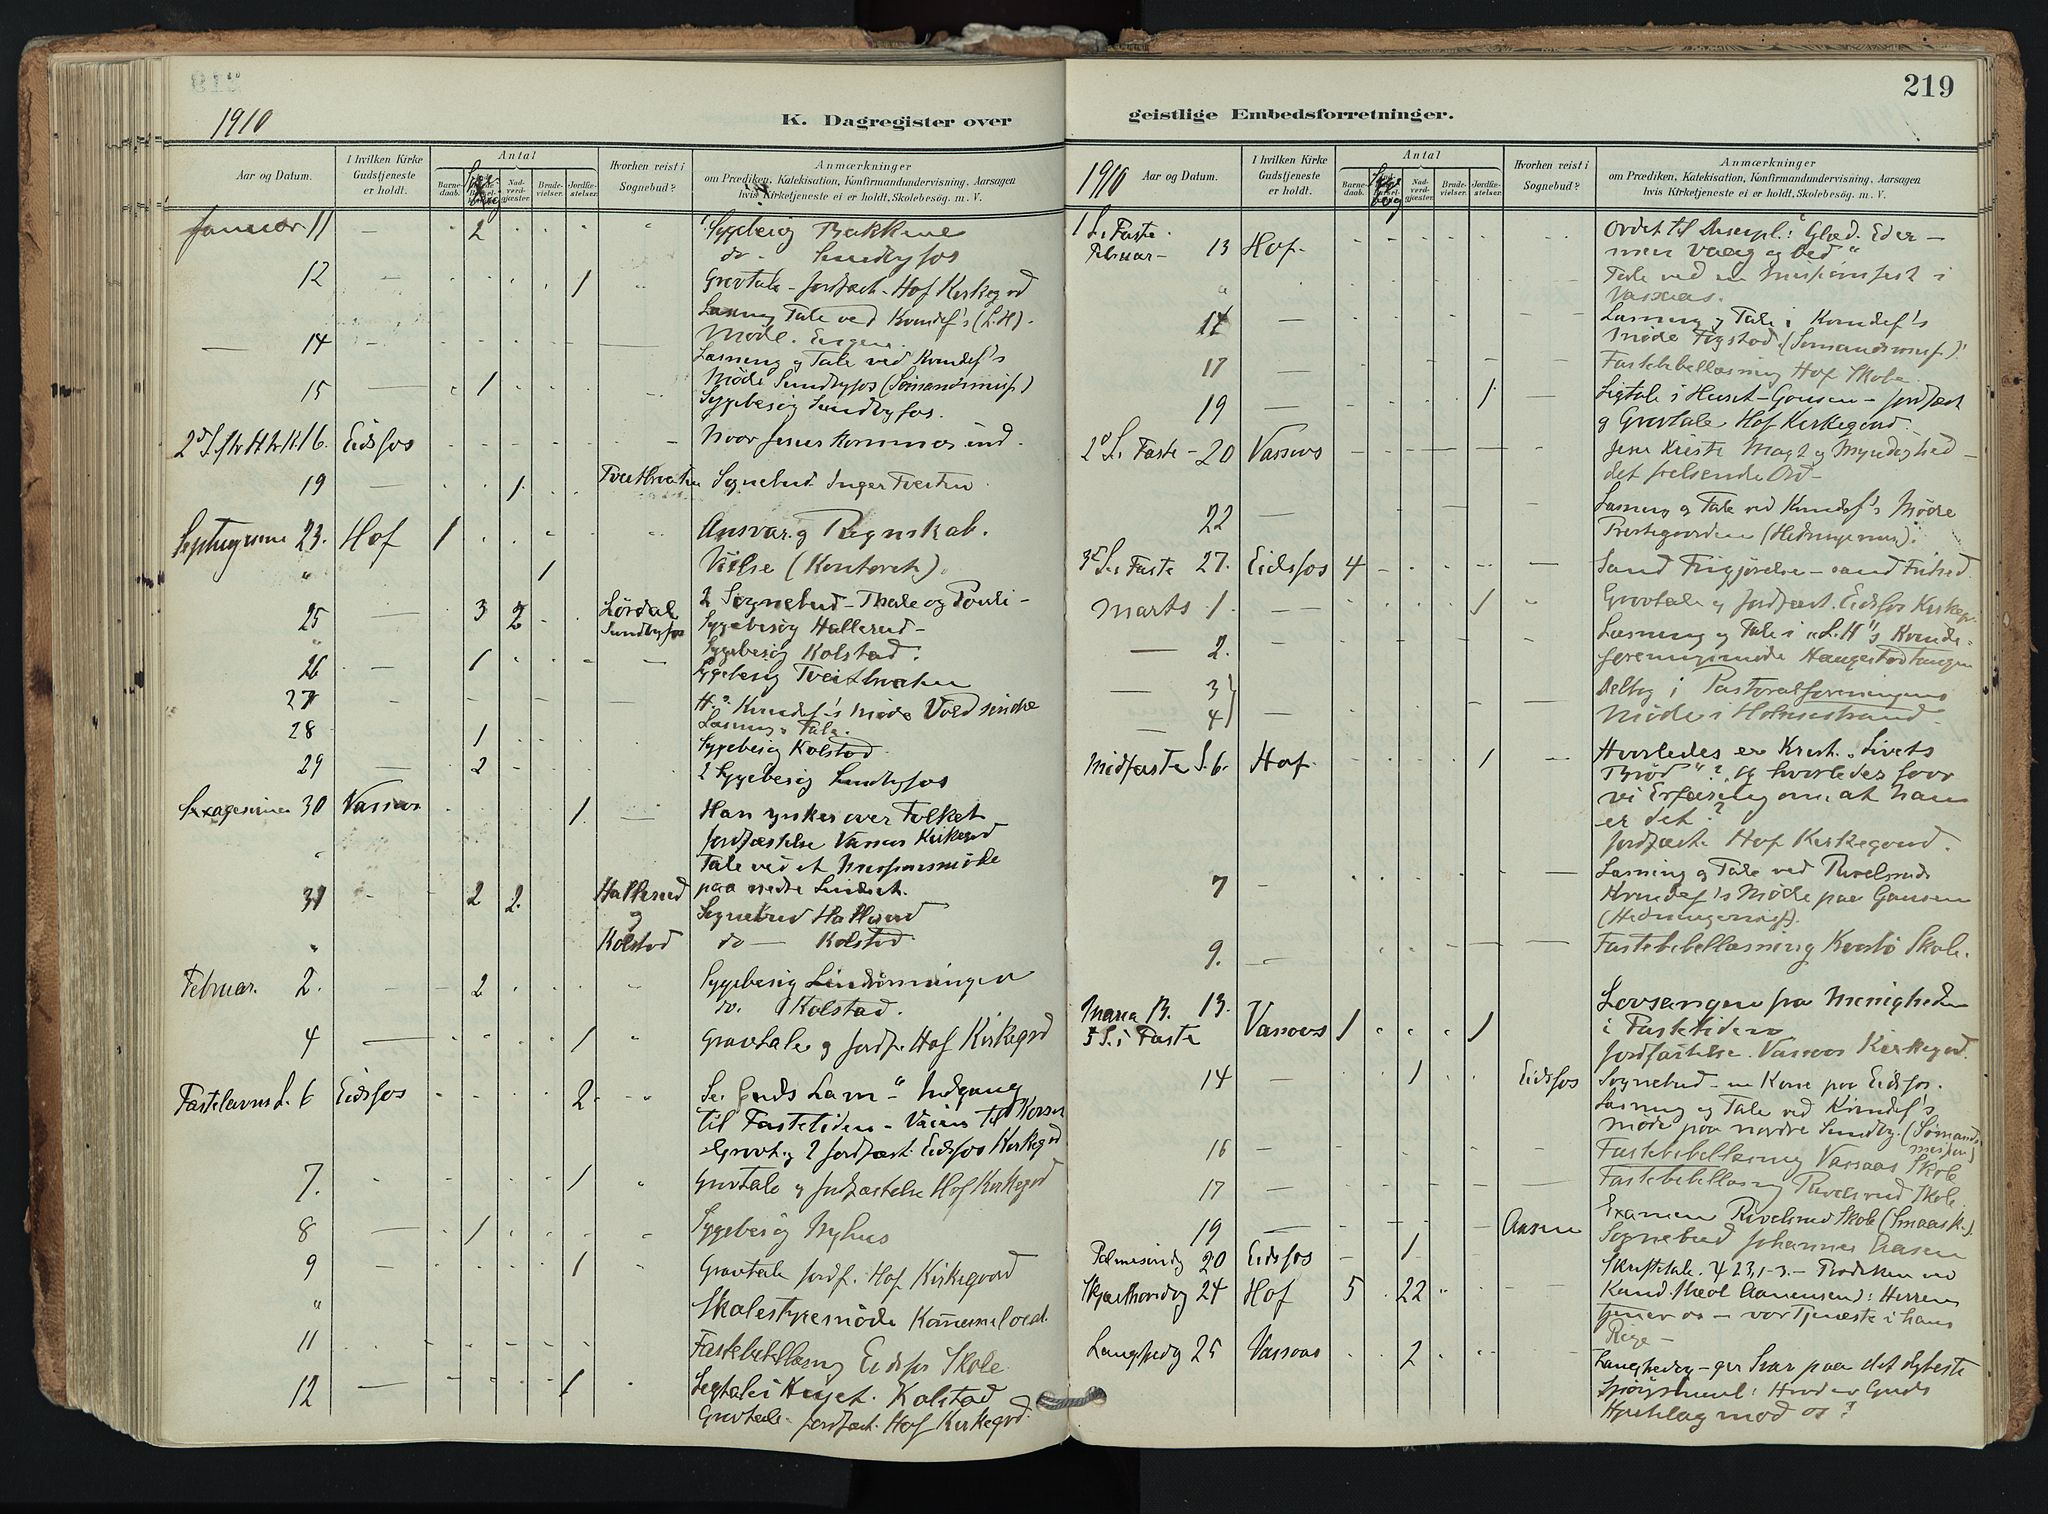 219
1910
K. Dagregister over
Aar og Datum.
I hvilken Kirke
Gudstjeneste
er holdt.
Antal
Barne-
daab.
Nad-
verd-
gjæster.
Brude-
vielser.
Jordfæ-
stelser.
Hvorhen reist i
Sognebud?
Anmærkninger
om Prædiken, Katekisation, Konfirmandundervisning, Aarsagen
hvis Kirketjeneste ei er holdt, Skolebesøg. m. V.
Januar 11 — 2 Sygebesøg Bakkene
do. Sundbyfos
12 — 1 Gravtale - Jordfæst. Hof Kirkegrd
Læsning Tale ved Kvindef's (L.H).
— 14 — Møde. Engene.
Læsning og Tale ved Kvindef's
Møde Sundbyfos (Sømandsmisj.)
15 — 1 Sygebesøg Sundbyfos.
16. Eidsfos Hvor Jesus kommer ind.
19 — 1. Sognebud Inger Tveiten
23. Hof 1 Ansvar og Regnskab.
" 1 Vielse (Kontoret).
25 — 3 2 Lørdal 2 Sognebud -
Sundbyfos Sygebesøg Hallerud -
" Sygebesøg Kolstad.
26 — 1 Sygebesøg
27 Kvindef's Møde Vold søndre
Læsning Tale.
28 1 Sygebesøg Kolstad
29 — 2 2 Sygebesøg Sundbyfos
Sexagesima 30 Vassaas 1. — Han ynkes over Folket
Jordfæstelse Vassaas Kirkegrd
Tale ved et Missionsmøde
31 2 2. Hallerud paa nedre
og Sognebud Hallerud
" Kolstad do — Kolstad
Februar. 2. — 2 Sygebesøg
do. Kolstad.
4 — 1 Gravtale og Jordf. Hof Kirkegrd
Fastelavns S. 6 Eidsfos 2 Se Guds Lam" Indgang
til Fastetiden - Veien til Korset
Gravt. og 2 Jordfæst. Eidsfos Kirkegrd
7. 1 Gravtale og Jordfæstelse Hof Kirkegrd
8 — 1 Sygebesøg Nyhus
9 1 Gravtale Jordf. Hof Kirkegaard
" Skolestyremøde Kommunelocal.
11 Fastebibellæsning Eidsfos Skole
12 — 1 Ligtale i Huset. Kolstad
Gravtale. Jordfæst. Hof Kirkegrd.
geistlige Embedsforretninger.
1910
Aar og Datum.
I hvilken Kirke
Gudstjeneste
er holdt.
Antal
Barne-
daab.
Nad-
verd-
gjæster.
Brude-
vielser.
Jordfæ-
stelser.
Hvorhen reist i
Sognebud?
Anmærkninger
om Prædiken, Katekisation, Konfirmandundervisning, Aarsagen
hvis Kirketjeneste ei er holdt, Skolebesøg. m. V.
1 S. i Faste Ordet til Discipl.: "Glæd Eder -
Februar - 13 Hof.
" Tale ved en Missionsfest i
Vassaas.
14 — Læsning og Tale i Kvindef's
Møde (Sømandsmisj.)
17 — Fastebibellæsning Hof Skole
19 — 1 Ligtale i Huset - Gausen - Jordfæst
og Gravtale Hof Kirkegaard.
2 S. i Faste - 20 Vassaas Jesu Kristi Magt og Myndighed -
det frelsende Ord -
22 — Læsning og Tale ved Kvindef's Møde
Prestegaarden (Hedningemis.).
3 S. i Faste 27. Eidsfos 4 Sand Frigjørelse - sand Frihed
Marts 1. — 1 Gravtale og Jordfæst. Eidsfos Kirkegr.
Læsning og Tale i L.H's Kvinde-
— 2. foreningsmøde Haugestadtangen
— 3 Deltog i Pastoralforeningens
— 4 — Møde i Holmestrand -
Midfaste S. 6. Hof 1 — Hvorledes er Krist. "Livets
Brød"? og hvorledes faar
vi Erfaring om, at han
er det?
Jordfæst. Hof Kirkegaard.
7 — Læsning og Tale ved Revelsruds
Kvindef's Møde paa Gausen
(Hedningemis.).
9. — Fastebibellæsning Skole.
Maria B. 13. Lovsangen fra Menigheden
5 S. i Faste Vassaas 1 1 i Fastetiden
Jordfæstelse. Vassaas Kirkegrd.
14 — 1 Eidsfos Sognebud - en Kone paa Eidsfos.
Læsning og Tale ved Kvindef's
Møde paa nordre Sundby. (Sømands-
misjon)
16 — Fastebibellæsning Vassaas Skole
17 — Fastebibellæsning Revelsrud Skole.
Examen Revelsrud Skole (Smaask.)
19 — Aasen Sognebud Johannes Aasen
Palmesøndg 20 Eidsfos 1
Skjærthorsdag 24 Hof 5 22 Skriftetale. 23, 1-3. - Prædiken ved
Kand. theol Aanensen: Herren
tjener os - vor Tjeneste i hans
Rige -
Langfredg 25 Vassaas 2 Langfredag - gir Svar paa det dybeste
Spørgsmaal: Hvad er Guds
Hjertelag mod os?